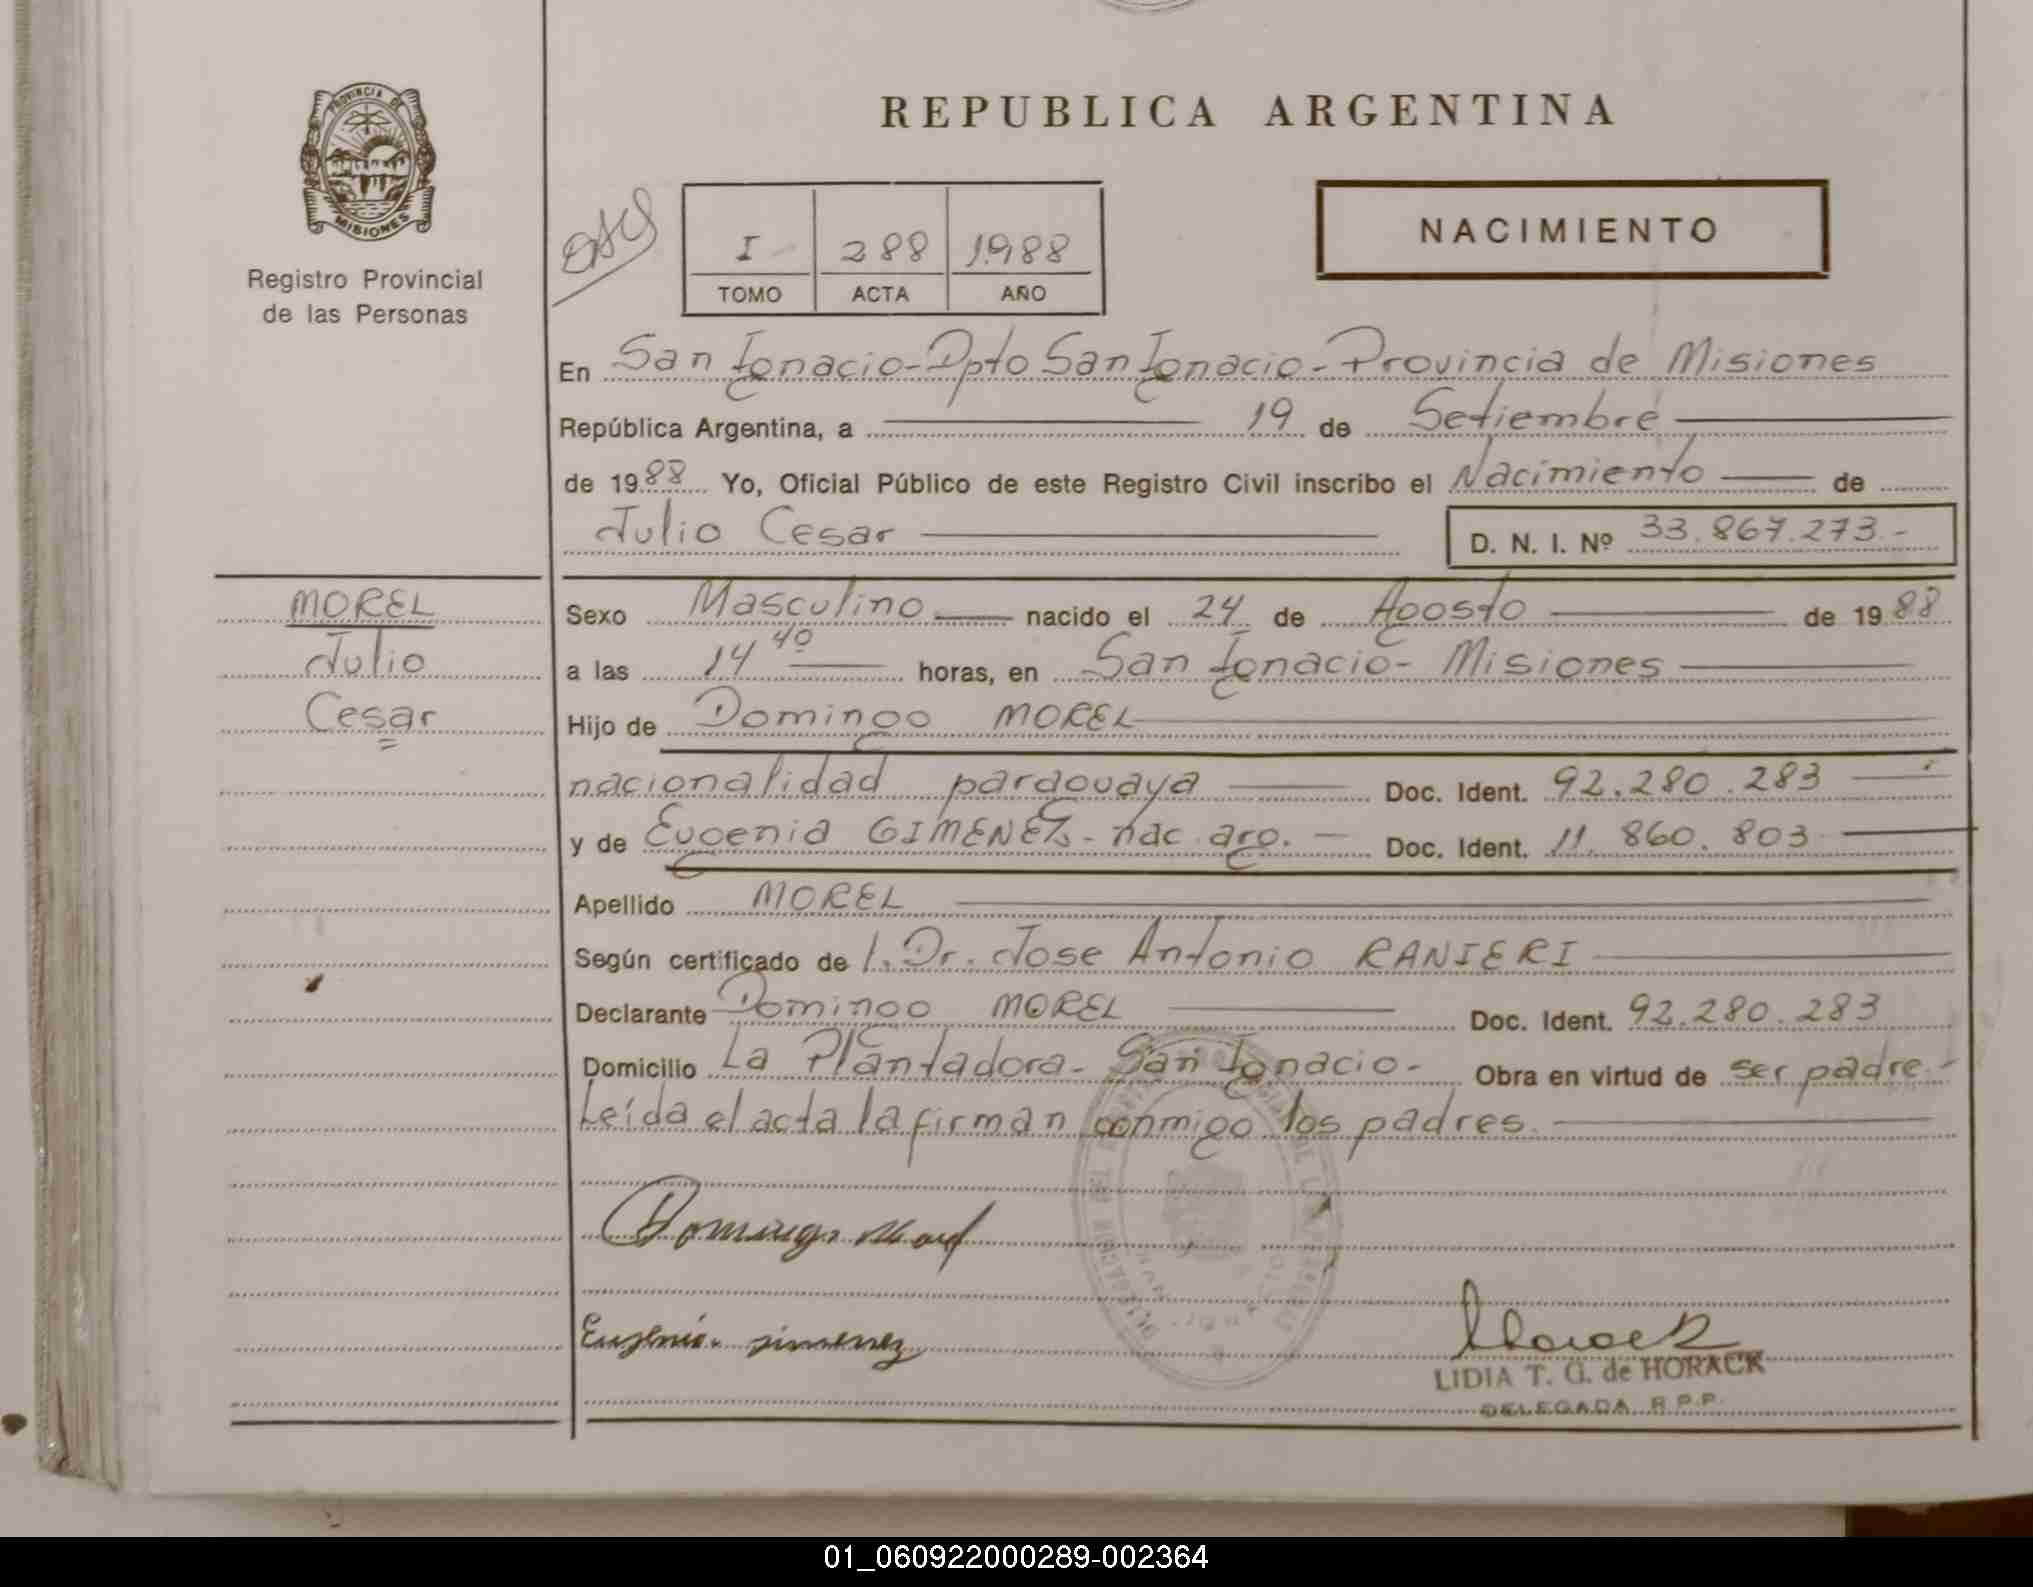 PROVINCIA DE
MISIONES
Registro Provincial
de las Personas
REPUBLICA ARGENTINA
I 288 1988
TOMO ACTA AÑO
NACIMIENTO
En San Ignacio-Dpto San Ignacio-Provincia de Misiones
República Argentina, a 19 de Setiembre
de 1988 Yo, Oficial Público de este Registro Civil inscribo el Nacimiento de
Julio Cesar
D. N. I. Nº 33.867.273.-
MOREL
Julio
Cesar
Sexo Masculino nacido el 24 de Agosto de 1988
a las 14 40 horas, en San Ignacio- Misiones
Hijo de Domingo MOREL
nacionalidad paraguaya Doc. Ident. 92.280.283
y de Eugenia GIMENEZ- nac. arg. Doc. Ident. 11.860.803
Apellido MOREL
Según certificado de l. Dr. Jose Antonio RANIERI
Declarante Domingo MOREL Doc. Ident. 92.280.283
Domicilio La Plantadora- San Ignacio- Obra en virtud de ser padre.-
Leída el acta la firman conmigo los padres.
Domingo Morel
Eugenia gimenez
Horack
LIDIA T. G. de HORACK
DELEGADA R.P.P.
01_060922000289-002364